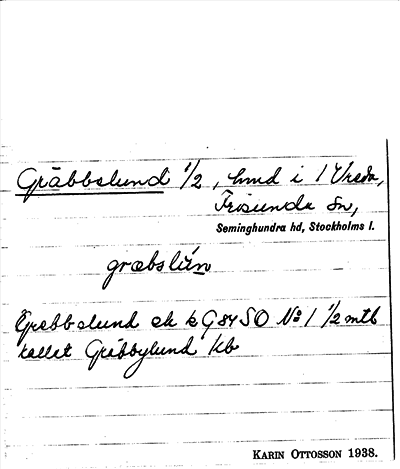 Gräbbslund 1/2, hmd i 1 Vreda,
Frösunda sn,
Seminghundra hd, Stockholms l.
græbslún
Gräbbslund ek k G 84 SO No 1 1/2 mtb
kallat Gräbbylund kb
KARIN OTTOSSON 1938.